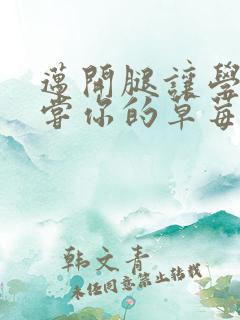 蕩開腿讓學
嘗你的草莓
韩文青
未经同意禁止转载